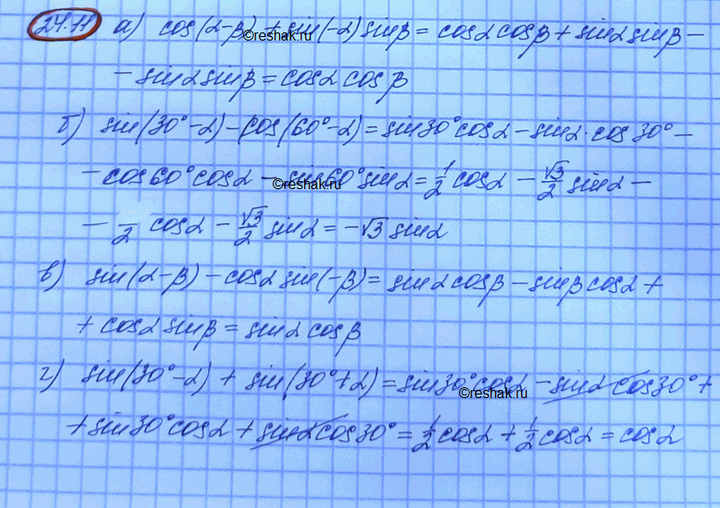 24.11 а) cos(α-β) + sin(-α) sinβ = cosα cosβ + sinα sinβ -
- sinα sinβ = cosα cosβ
б) sin(30°-α) - cos(60°-α) = sin30° cosα - sinα · cos30° -
- cos60° cosα - sin60° sinα = 1/2 cosα - √3/2 sinα -
- /2 cosα - √3/2 sinα = -√3 sinα
в) sin(α-β) - cosα sin(-β) = sinα cosβ - sinβ cosα +
+ cosα sinβ = sinα cosβ
г) sin(30°-α) + sin(30°+α) = sin30° cosα - sinα cos30° +
+ sin30° cosα + sinα cos30° = 1/2 cosα + 1/2 cosα = cosα
©reshak.ru
©reshak.ru
©reshak.ru